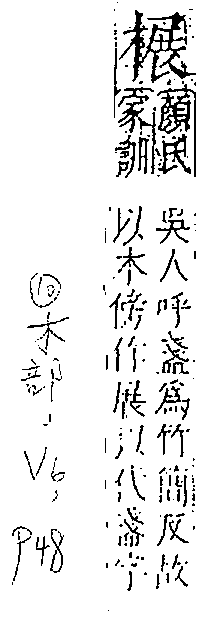 榐
顏氏
家訓
吳人呼盞爲竹簡反故
以木傍作展以代盞字
⑩木部, V6, P48